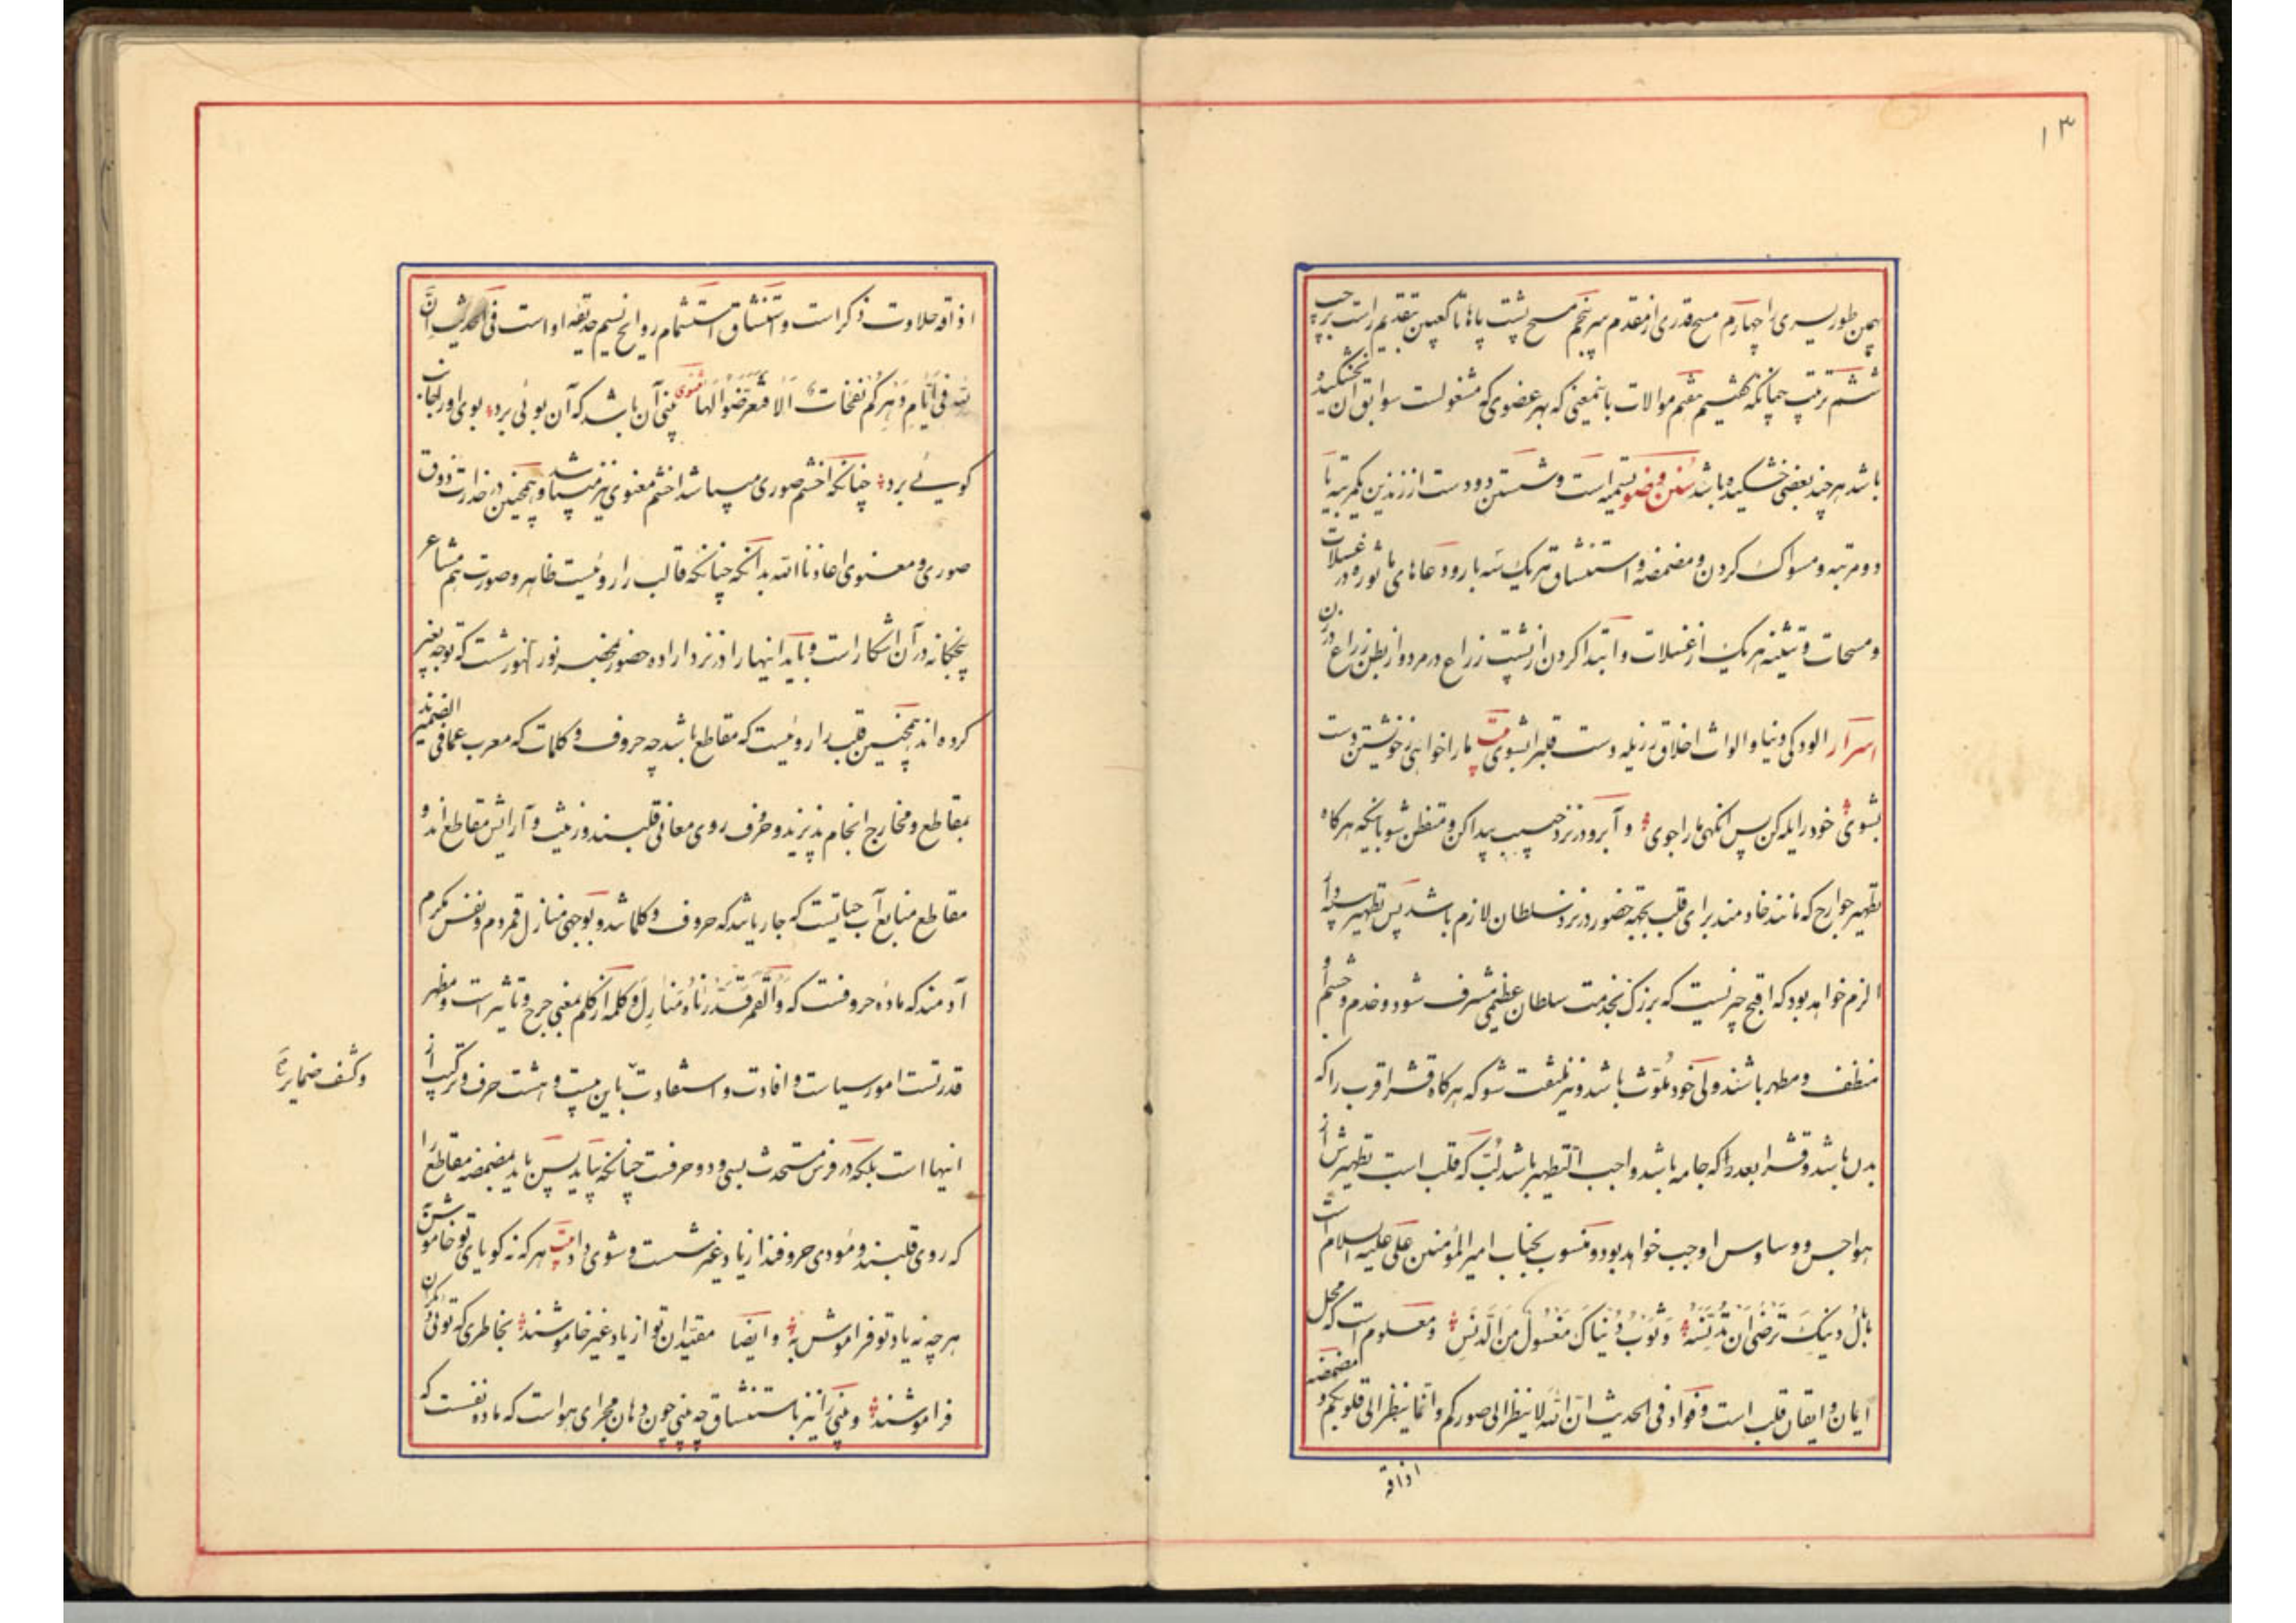 ۱۳
همین طور یسری را چهارم مسح قدری از مقدم سر پنجم مسح پشت پاها تا کعبین بتقدیم راست بر چپ
ششم ترتیب چنانکه گفتیم هفتم موالات باینمعنی که بهر عضوی که مشغولست سوابق آن نخشکیده
باشد هرچند بعضی خشکیده باشد سنن وضو تسمیه است و شستن دو دست از زندین یکمرتبه یا
دو مرتبه و مسواک کردن و مضمضه و استنشاق هریک سه بار و دعاهای ماثوره در غسلات
و مسحات و تثنیه هریک از غسلات و ابتدا کردن از پشت زراع در مرد و از بطن زراع در زن
اسرار الودکی دنیا و الواث اخلاق رزیله دست قلبرا بشوی بیت ما را خواهی ز خویشتن دست
بشوی خود را یله کن پس انگهی ما را جوی و آبرو در نزد حبیب پیدا کن و متفطن شو بانکه هرکاه
تطهیر جوارح که مانند خادمند برای قلب بجهة حضور در نزد سلطان لازم باشد پس تطهیر
الزم خواهد بود که اقبح چیزیست که بزرگ بخدمت سلطان عظیمی مشرف شود و خدم و حشم او
منظف و مطهر باشند ولی خود ملوث باشد و نیز ملتفت شو که هرکاه قشر اقرب را که
بدن باشد و قشر ابعد را که جامه باشد واجب التطهیر باشد لب که قلب است تطهیرش از
هواجس و وساوس اوجب خواهد بود و منسوب بجناب امیر المؤمنین علی علیه السلام است
بال دینک ترضی ان تدنسه و ثوب دنیاک مغسول من الدنس و معلوم است که محل
ایمان و ایقان قلب است و فواد فی الحدیث ان الله لا ینظر الی صورکم و انما ینظر الی قلوبکم و مضمضه
اذاقه
اذاقه حلاوت ذکر است و استنشاق استشمام روایح نسیم حدیقه او است فی الحدیث ان
لله فی ایام دهرکم نفخات الا فتعرضوا لها مثنوی بینی آن باشد که آن بوئی برد بوی او را بجانب
کوئی برد چنانکه اخشم صوری میباشد اخشم معنوی نیز میباشد و همچنین در خدارت ذوق
صوری و معنوی اعاذنا الله بدانکه چنانکه قالب را روئیست ظاهر و صورت هم مشاعر
پنجکانه در آن اشکار است و باید اینها را در نزد اراده حضور بمحضر نور انهور شست که توجه بغیر
کرده اند همچنین قلب را روئیست که مقاطع باشد چه حروف و کلمات که معرب عما فی الضمیرند
بمقاطع و مخارج انجام پذیرند و حروف روی معانی قلبند و زینت و آرایش مقاطع اند و
مقاطع منابع آب حیاتیست که جار یباشد که حروف و کلما شد و بوجهی منازل قمرند و نفس مکرم
آدمند که ماده حروفست که و القمر قدرناه منازل و کلمه از کلم بمعنی جرح و تاثیر است و مظهر
قدرتست امور سیاست و افادت و استفادت باین بیست و هشت حرف و ترکیب از
و کشف ضمایر
انیها است بلکه در فرس مستحدث بسی و دو حرفست چنانکه بیاید پس باید بمضمضه مقاطع را
که روی قلبند و مؤدی حروفند از یاد غیر شست و شوی داد بیت هر که نه کویای تو خاموش به
هر چه نه یاد تو فراموش به و ایضا مقیدان تو از یاد غیر خاموشند بخاطری که توئی دیگران
فراموشند و بینی را نیز باستنشاق چه بینی چون دهان مجرای هواست که ماده نفست که